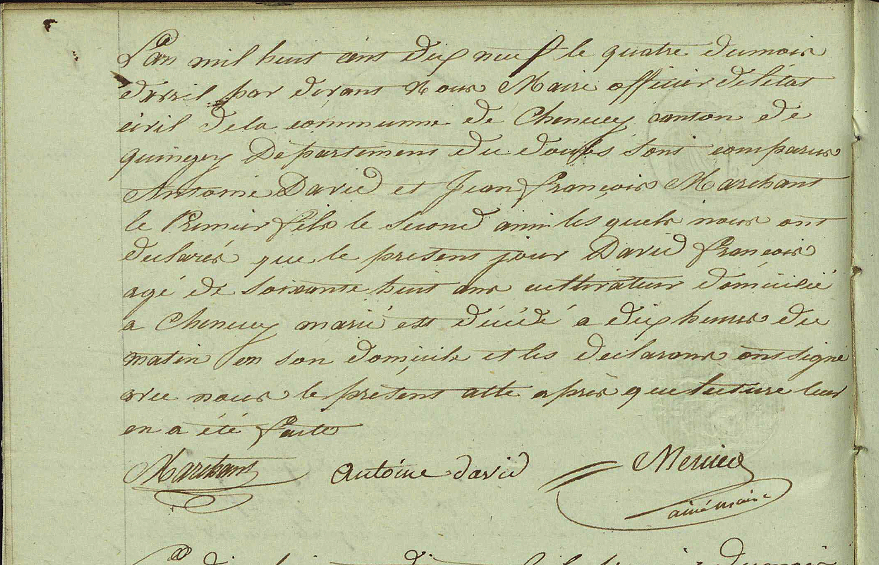 L'an mil huit cens dix neuf le quatre du mois
d'avril par devant nous Maire officier de l'état
civil de la commune de Chenecey canton de
quingey Département du doubs sont comparus
Antoine David et Jean françois Marchant
le Premier fils le second ami les quels nous ont
declarés que le présent jour David françois
agé de soixante huit ans cultivateur domicilié
a Chenecey marié est décédé a dix heures du
matin en son domicile et les declarans ont signé
avec nous le présent acte après que lecture leur
en a été faite
Marchant Antoine david Mercier
ainé maire